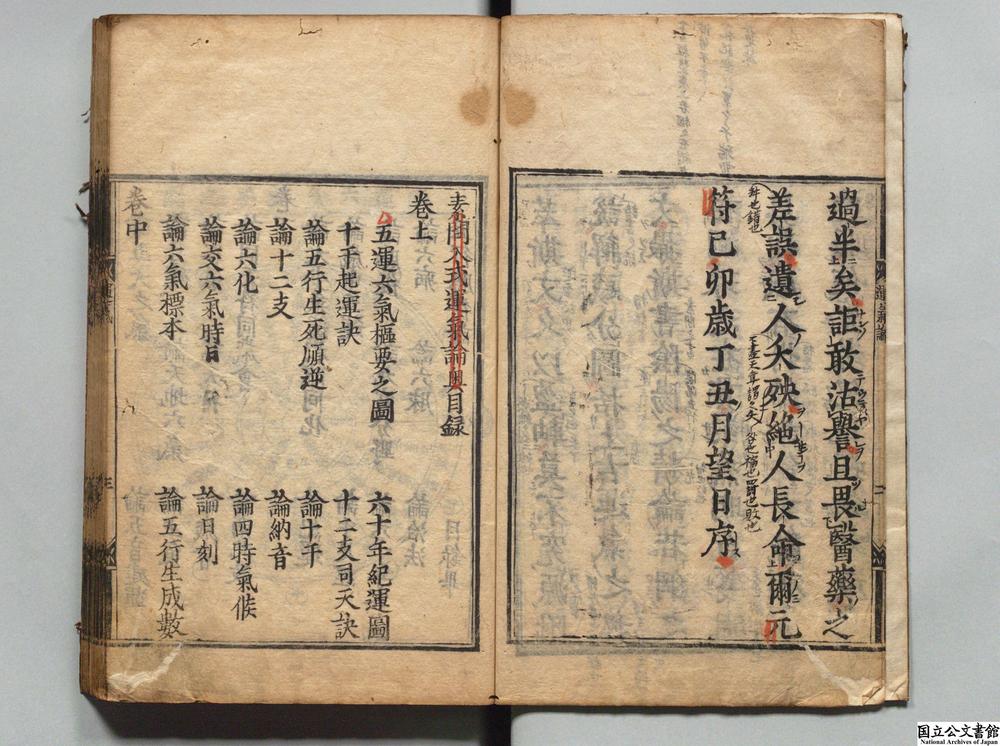 過半矣詎敢沽譽且畏醫藥之
差誤遺人夭殃絶人長命爾元
符已卯歳丁丑月望日序
素問入式運氣論奧目録
卷上
五運六氣樞要之圖
六十年紀運圖
十干起運訣
十二支司天訣
論五行生死順逆同化
論十干
論十二支
論納音
論六化
論四時氣候
論交六氣時日
論日刻
論六氣標本
論五行生成數
卷中
国立公文書館
National Archives of Japan